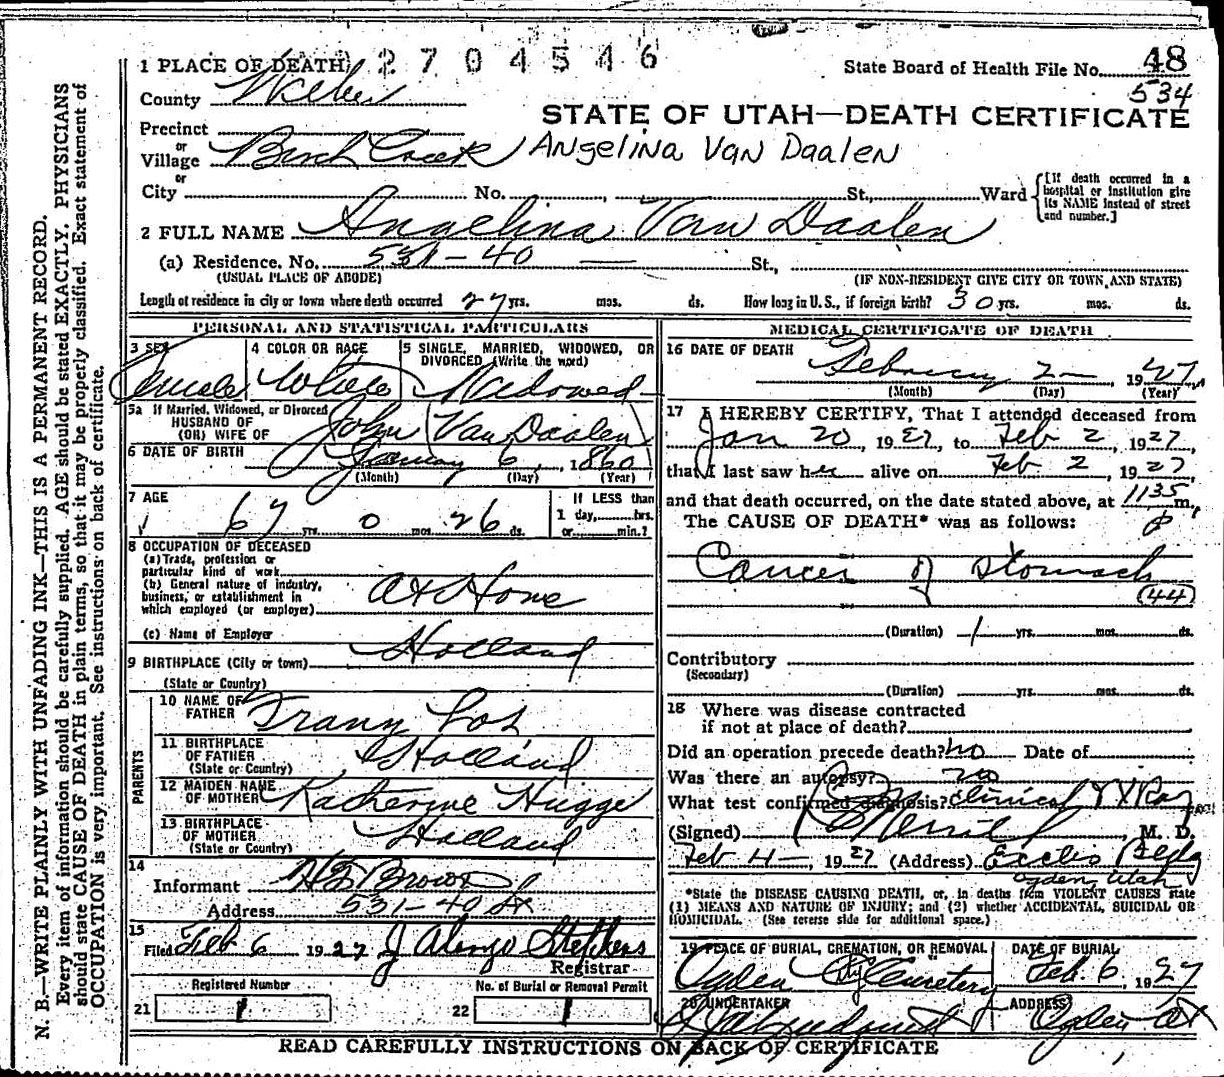 1 PLACE OF DEATH 2704546
State Board of Health File No. 48
534
County Weber
STATE OF UTAH—DEATH CERTIFICATE
Precinct
or
Village Birch Creek Angelina Van Daalen
or
City No. St., Ward
[If death occurred in a hospital or institution give its NAME instead of street and number.]
2 FULL NAME Angelina Van Daalen
(a) Residence. No. 531-40 — St.,
(USUAL PLACE OF ABODE) (IF NON-RESIDENT GIVE CITY OR TOWN AND STATE)
Length of residence in city or town where death occurred 27 yrs. mos. ds. How long in U. S., if foreign birth? 30 yrs. mos. ds.
PERSONAL AND STATISTICAL PARTICULARS
3 SEX Female
4 COLOR OR RACE White
5 SINGLE, MARRIED, WIDOWED, OR DIVORCED (Write the word) Widowed
5a If Married, Widowed, or Divorced
HUSBAND OF
(OR) WIFE OF John Van Daalen
6 DATE OF BIRTH January 6, 1860
(Month) (Day) (Year)
7 AGE 67 yrs. 0 mos. 26 ds.
If LESS than
1 day, hrs.
or min.?
8 OCCUPATION OF DECEASED
(a) Trade, profession or
particular kind of work
(b) General nature of industry,
business, or establishment in
which employed (or employer) At Home
(c) Name of Employer
9 BIRTHPLACE (City or town) Holland
(State or Country)
PARENTS
10 NAME OF
FATHER Frany Los
11 BIRTHPLACE
OF FATHER
(State or Country) Holland
12 MAIDEN NAME
OF MOTHER Katherine Hugge
13 BIRTHPLACE
OF MOTHER
(State or Country) Holland
14
Informant H E Brown
Address 531-40 St
15
Filed Feb 6 1927 J Alonzo Stephens
Registrar
Registered Number
21
No. of Burial or Removal Permit
22
MEDICAL CERTIFICATE OF DEATH
16 DATE OF DEATH
February 2—, 1927
(Month) (Day) (Year)
17 I HEREBY CERTIFY, That I attended deceased from
Jan 20 1927, to Feb 2, 1927,
that I last saw her alive on Feb 2, 1927
and that death occurred, on the date stated above, at 1135 m,
The CAUSE OF DEATH* was as follows: P
Cancer of Stomach
(44)
(Duration) 1 yrs. mos. ds.
Contributory
(Secondary)
(Duration) yrs. mos. ds.
18 Where was disease contracted
if not at place of death?
Did an operation precede death? no Date of
Was there an autopsy? no
What test confirmed diagnosis? Clinical & X Ray
(Signed) Merrill, M. D.
Feb 4—, 1927 (Address) Eccles Bldg
Ogden Utah
*State the DISEASE CAUSING DEATH, or, in deaths from VIOLENT CAUSES state
(1) MEANS AND NATURE OF INJURY; and (2) whether ACCIDENTAL, SUICIDAL OR
HOMICIDAL. (See reverse side for additional space.)
19 PLACE OF BURIAL, CREMATION, OR REMOVAL DATE OF BURIAL
Ogden City Cemetery Feb. 6, 1927
20 UNDERTAKER ADDRESS
Ogden Ut
READ CAREFULLY INSTRUCTIONS ON BACK OF CERTIFICATE
N. B.—WRITE PLAINLY WITH UNFADING INK—THIS IS A PERMANENT RECORD.
Every item of information should be carefully supplied. AGE should be stated EXACTLY. PHYSICIANS
should state CAUSE OF DEATH in plain terms, so that it may be properly classified. Exact statement of
OCCUPATION is very important. See instructions on back of certificate.